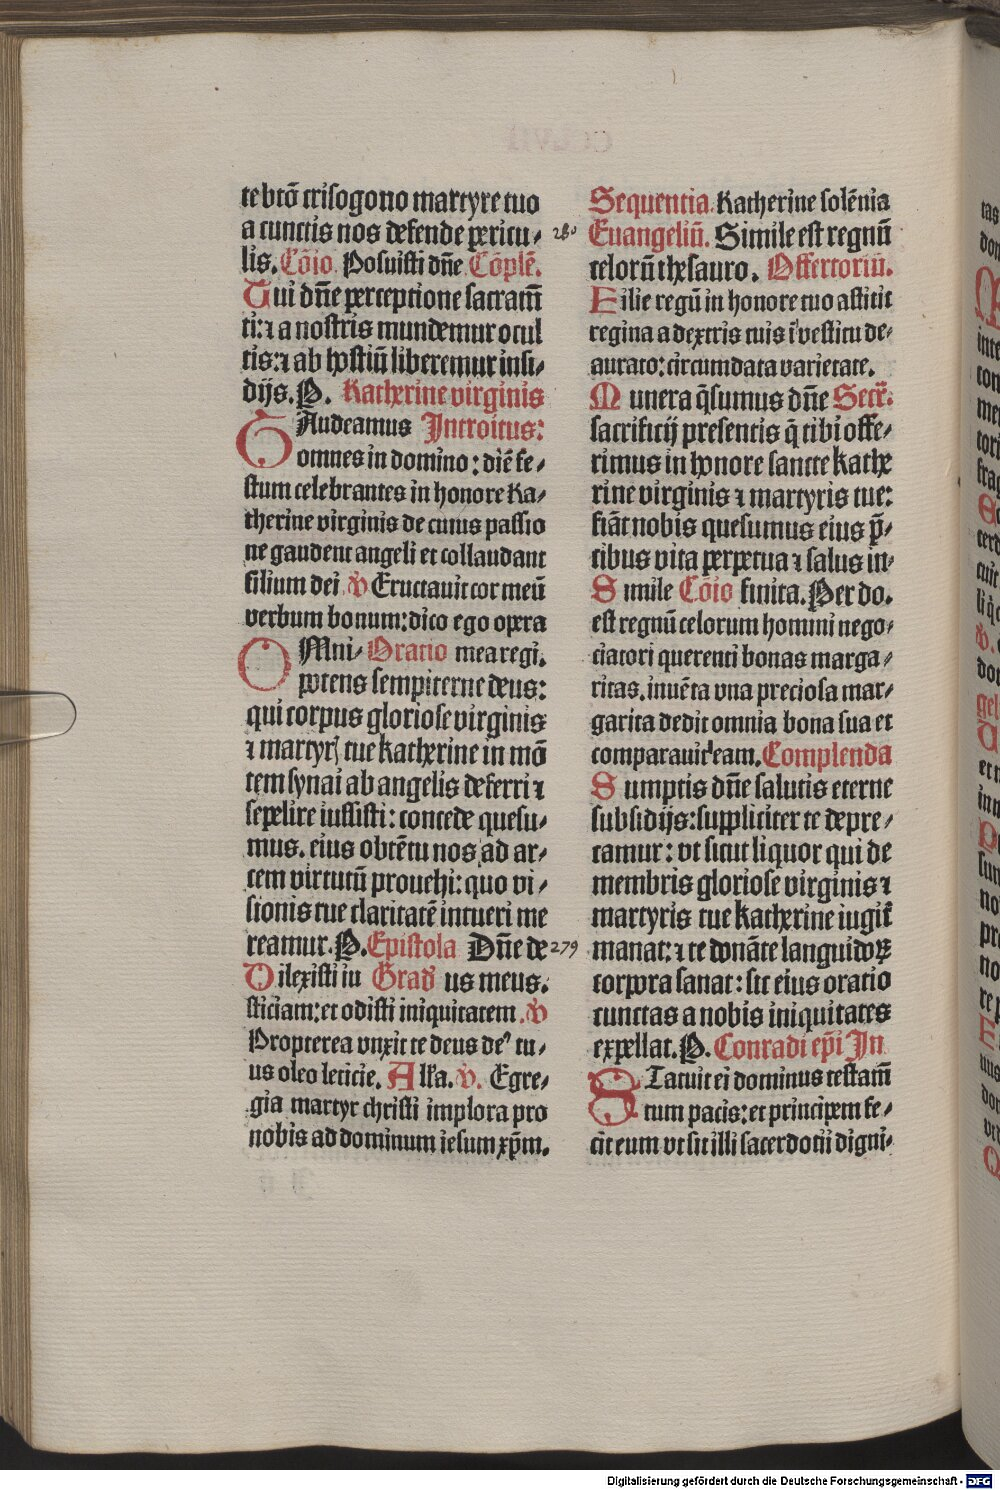 te btõ crisogono martyre tuo
a cunctis nos defende pericu⸗
lis. Cõio. Posuisti dñe Cõplẽ.
Tui dñe perceptione sacramẽ
ti: ⁊ a nostris mundemur ocul
tis: ⁊ ab hostiũ liberemur insi⸗
dijs. P. Katherine virginis
GAudeamus Introitus:
omnes in domino: diẽ fe⸗
stum celebrantes in honore ka⸗
therine virginis de cuius passio
ne gaudent angeli et collaudant
filium dei ℣ Eructauit cor meũ
verbum bonum: dico ego opera
OMni⸗ Oratio mea regi.
potens sempiterne deus:
qui corpus gloriose virginis
⁊ martyrꝭ tue katherine in mõ
tem synai ab angelis deferri ⁊
sepelire iussisti: concede quesu⸗
mus. eius obtẽtu nos ad ar⸗
cem virtutũ prouehi: quo vi⸗
sionis tue claritatẽ intueri me
reamur. P. Epistola Dñe de 279
Dilexisti iu Grad᷒ us meus.
sticiam: et odisti iniquitatem. ℣
Propterea vnxit te deus de᷒ tu⸗
us oleo leticie. Alľa. ℣. Egre⸗
gia martyr christi implora pro
nobis ad dominum iesum xp̃m.
Sequentia. Katherine solẽnia
280 Euangeliũ. Simile est regnũ
celorũ thesauro. Offertoriũ.
Filie regũ in honore tuo astitit
regina a dextris tuis ĩ vestitu de⸗
aurato: circumdata varietate.
Munera q̃sumus dñe Secr̃.
sacrificij presentis q̃ tibi offe⸗
rimus in honore sancte kathe
rine virginis ⁊ martyris tue:
fiãt nobis quesumus eius p̃⸗
cibus vita perpetua ⁊ salus in⸗
Simile Cõio finita. Per do.
est regnũ celorum homini nego⸗
ciatori querenti bonas marga⸗
ritas. inuẽta vna preciosa mar⸗
garita dedit omnia bona sua et
comparauit eam. Complenda
Sumptis dñe salutis eterne
subsidijs: suppliciter te depre⸗
camur: vt sicut liquor qui de
membris gloriose virginis ⁊
martyris tue katherine iugit̃
manat: ⁊ te donãte languidoꝝ
corpora sanat: sic eius oratio
cunctas a nobis iniquitates
expellat. P. Conradi ep̃i In
STatuit ei dominus testam̃
tum pacis: et principem fe⸗
cit eum vt sit illi sacerdotij digni⸗
Digitalisierung gefördert durch die Deutsche Forschungsgemeinschaft - DFG